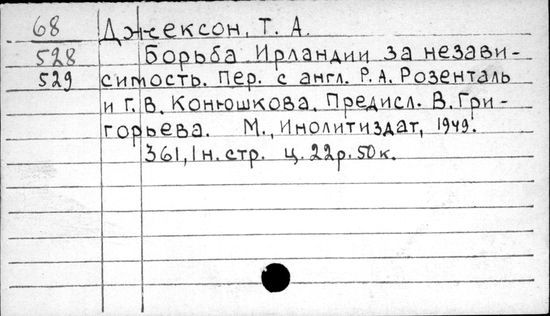 68 Джексон, Т. А.
528 Борьба Ирландии за незави-
529 симость. Пер. с англ. Р. А. Розенталь
и Г. В. Конюшкова. Предисл. В. Гри-
горьева. М., Инолитиздат, 1949.
361, 1 н. стр. ц. 22 р. 50 к.